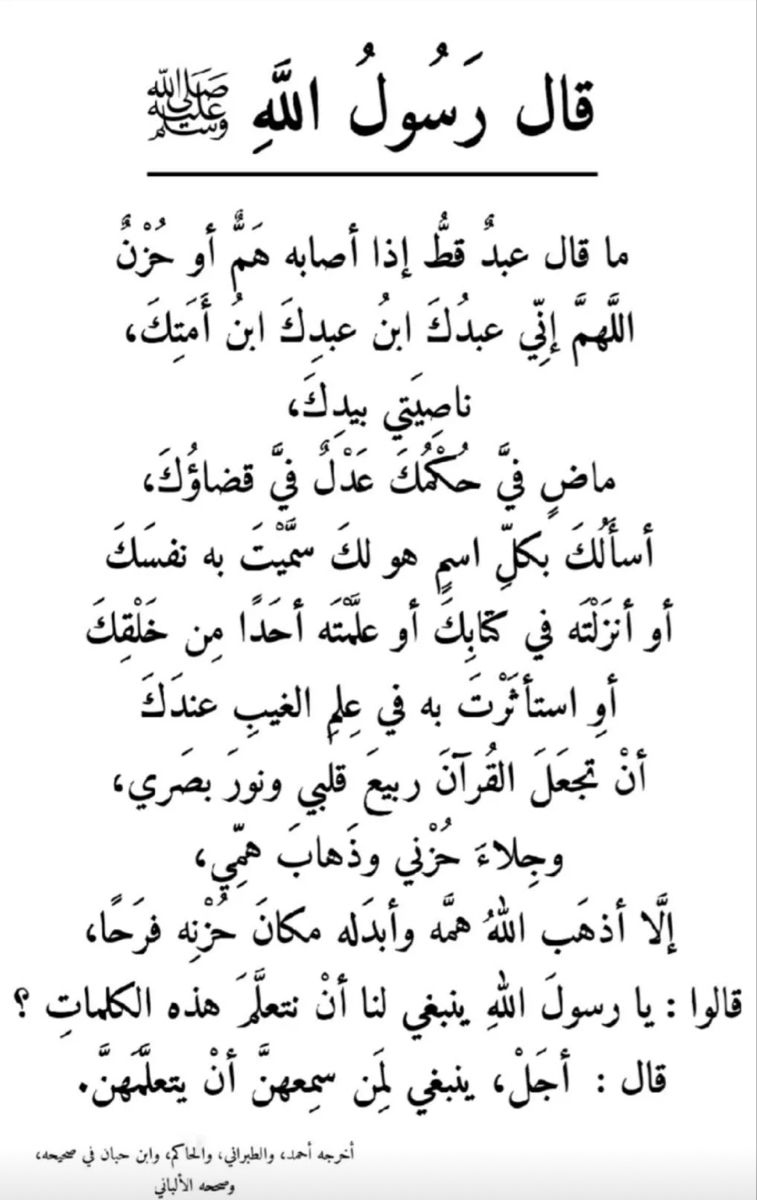 قال رَسُولُ اللَّهِ ﷺ
ما قال عبدٌ قطُّ إذا أصابه هَمٌّ أو حُزْنٌ
اللَّهمَّ إنِّي عبدُكَ ابنُ عبدِكَ ابنُ أَمَتِكَ،
ناصِيَتي بيدِكَ،
ماضٍ فيَّ حُكْمُكَ عَدْلٌ فيَّ قضاؤُكَ،
أسأَلُكَ بكلِّ اسمٍ هو لكَ سمَّيْتَ به نفسَكَ
أو أنزَلْتَه في كتابِكَ أو علَّمْتَه أحَدًا مِن خَلْقِكَ
أوِ استأثَرْتَ به في عِلمِ الغيبِ عندَكَ
أنْ تجعَلَ القُرآنَ ربيعَ قلبي ونورَ بصَري،
وجِلاءَ حُزْني وذَهابَ همِّي،
إلَّا أذهَب اللهُ همَّه وأبدَله مكانَ حُزْنِه فرَحًا،
قالوا : يا رسولَ اللهِ ينبغي لنا أنْ نتعلَّمَ هذه الكلماتِ ؟
قال : أجَلْ، ينبغي لِمَن سمِعهنَّ أنْ يتعلَّمَهنَّ.
أخرجه أحمد، والطبراني، والحاكم، وابن حبان في صحيحه،
وصححه الألباني